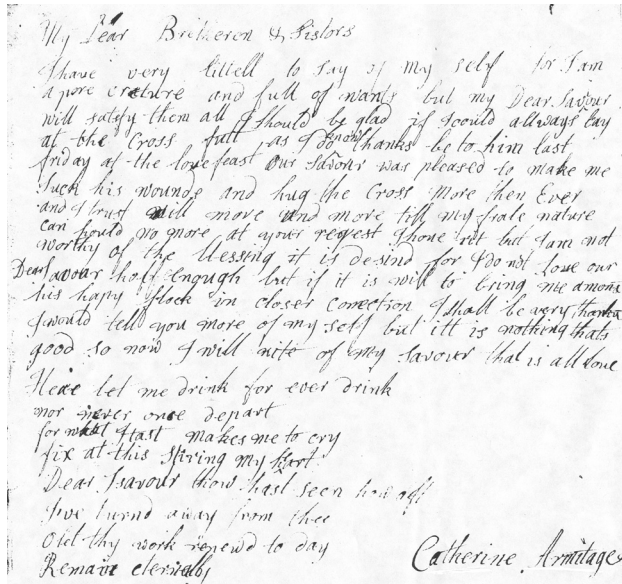 My Dear Bretheren & Sistors
I have very littell to say of my self for I am
a pore creture and full of wants but my Dear Savour
will satisfy them all I should be glad if I could allways lay
at the Cross full as I do know thanks be to him last
friday at the love feast our Savour was pleased to make me
Suck his wounds and hug the Cross more then Ever
and I trust will more and more till my frale nature
can hould no more at your regest I have rit but I am not
worthy of the blessing it is desind for I do not Love our
Dear Savour half enough but if it is will to bring me among
his hapy flock in closer conection I shall be very thankful
I would tell you more of my self but itt is nothing thats
good so now I will rite of my Savour that is all Love
Here let me drink for ever drink
nor never once depart
for what I tast makes me to cry
fix at this Spring my heart
Dear Savour thow hast seen how oft
I've turnd away from thee
O let thy work renewd to day
Remain eternally
Catherine Armitage